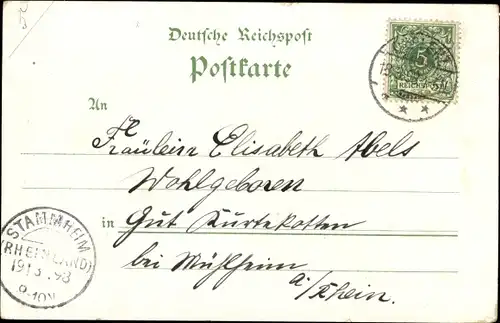 Deutsche Reichspost
Postkarte
5
REICHSPOST
An
Fräulein Elisabeth Abels
Wohlgeboren
in Gut Kurtekotten
bei Mühlheim
a/Rhein.
STAMMHEIM
(RHEINLAND)
98
9-10V